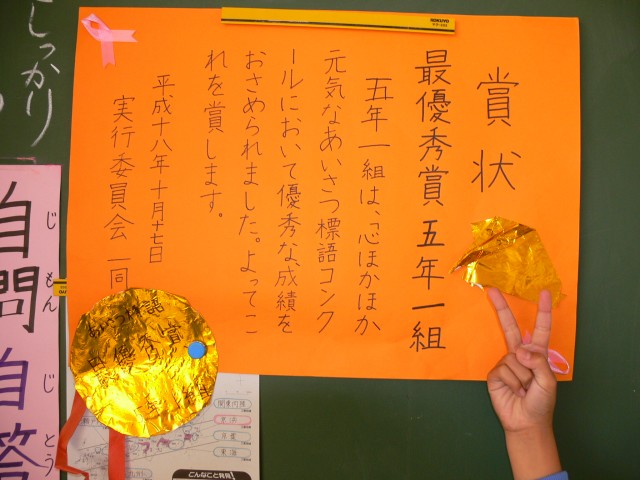 賞状
最優秀賞 五年一組
五年一組は、「心ほかほか
元気なあいさつ標語コンク
ールにおいて優秀な成績を
おさめられました。よってこ
れを賞します。
平成十八年十月十七日
実行委員会 一同
KOKUYO
しっかり
自問 自答
じもん じとう
最優秀賞
東海
こんなこと発見!